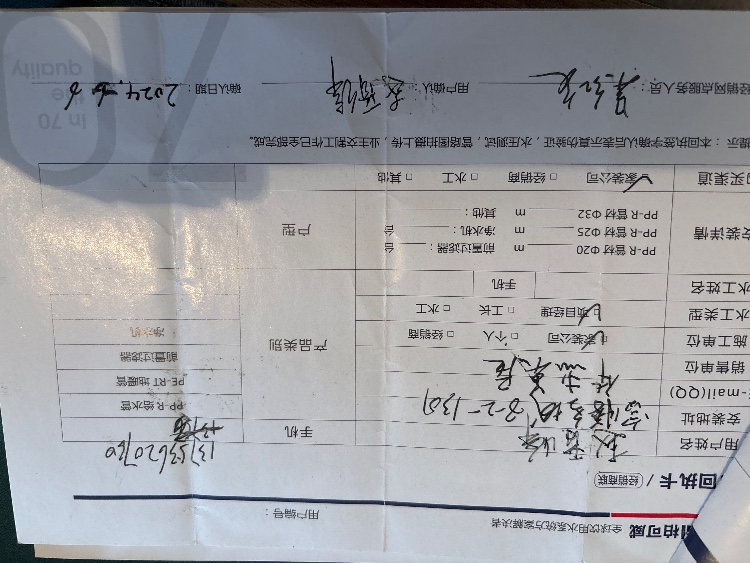 柏可威 全球饮用水系统方案解决者
用户编号：
回执卡 / (经销商联)
用户姓名 手机 13753620730
安装地址 3-2-1301 PP-R 给水管
E-mail(QQ) PE-RT 地暖管
销售单位 产品类别 前置过滤器
施工单位 家装公司 个人 经销商 净水机
水工类型 项目经理 工长 水工
水工姓名 手机
安装详情 PP-R 管材 Φ20 m 前置过滤器： 台 户型
PP-R 管材 Φ25 m 净水机： 台
PP-R 管材 Φ32 m 其他：
购买渠道 家装公司 经销商 水工 其他
提示：本回执签字确认后表示真伪验证，水压测试，管路图拍摄上传，业主交割工作已全部完成。
经销网点服务人员： 用户确认 确认日期： 2024.6.6
In 70
the
quality